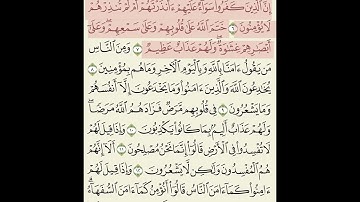 إِنَّ ٱلَّذِينَ كَفَرُوا۟ سَوَآءٌ عَلَيْهِمْ ءَأَنذَرْتَهُمْ أَمْ لَمْ تُنذِرْهُمْ
لَا يُؤْمِنُونَ ٦ خَتَمَ ٱللَّهُ عَلَىٰ قُلُوبِهِمْ وَعَلَىٰ سَمْعِهِمْ ۖ وَعَلَىٰٓ
أَبْصَٰرِهِمْ غِشَٰوَةٌ ۖ وَلَهُمْ عَذَابٌ عَظِيمٌ ٧ وَمِنَ ٱلنَّاسِ
مَن يَقُولُ ءَامَنَّا بِٱللَّهِ وَبِٱلْيَوْمِ ٱلْءَاخِرِ وَمَا هُم بِمُؤْمِنِينَ ٨
يُخَٰدِعُونَ ٱللَّهَ وَٱلَّذِينَ ءَامَنُوا۟ وَمَا يَخْدَعُونَ إِلَّآ أَنفُسَهُمْ
وَمَا يَشْعُرُونَ ٩ فِى قُلُوبِهِم مَّرَضٌ فَزَادَهُمُ ٱللَّهُ مَرَضًا ۖ
وَلَهُمْ عَذَابٌ أَلِيمٌۢ بِمَا كَانُوا۟ يَكْذِبُونَ ١٠ وَإِذَا قِيلَ لَهُمْ
لَا تُفْسِدُوا۟ فِى ٱلْأَرْضِ قَالُوٓا۟ إِنَّمَا نَحْنُ مُصْلِحُونَ ١١ أَلَآ إِنَّهُمْ
هُمُ ٱلْمُفْسِدُونَ وَلَٰكِن لَّا يَشْعُرُونَ ١٢ وَإِذَا قِيلَ لَهُمْ
ءَامِنُوا۟ كَمَآ ءَامَنَ ٱلنَّاسُ قَالُوٓا۟ أَنُؤْمِنُ كَمَآ ءَامَنَ ٱلسُّفَهَآءُ ۗ